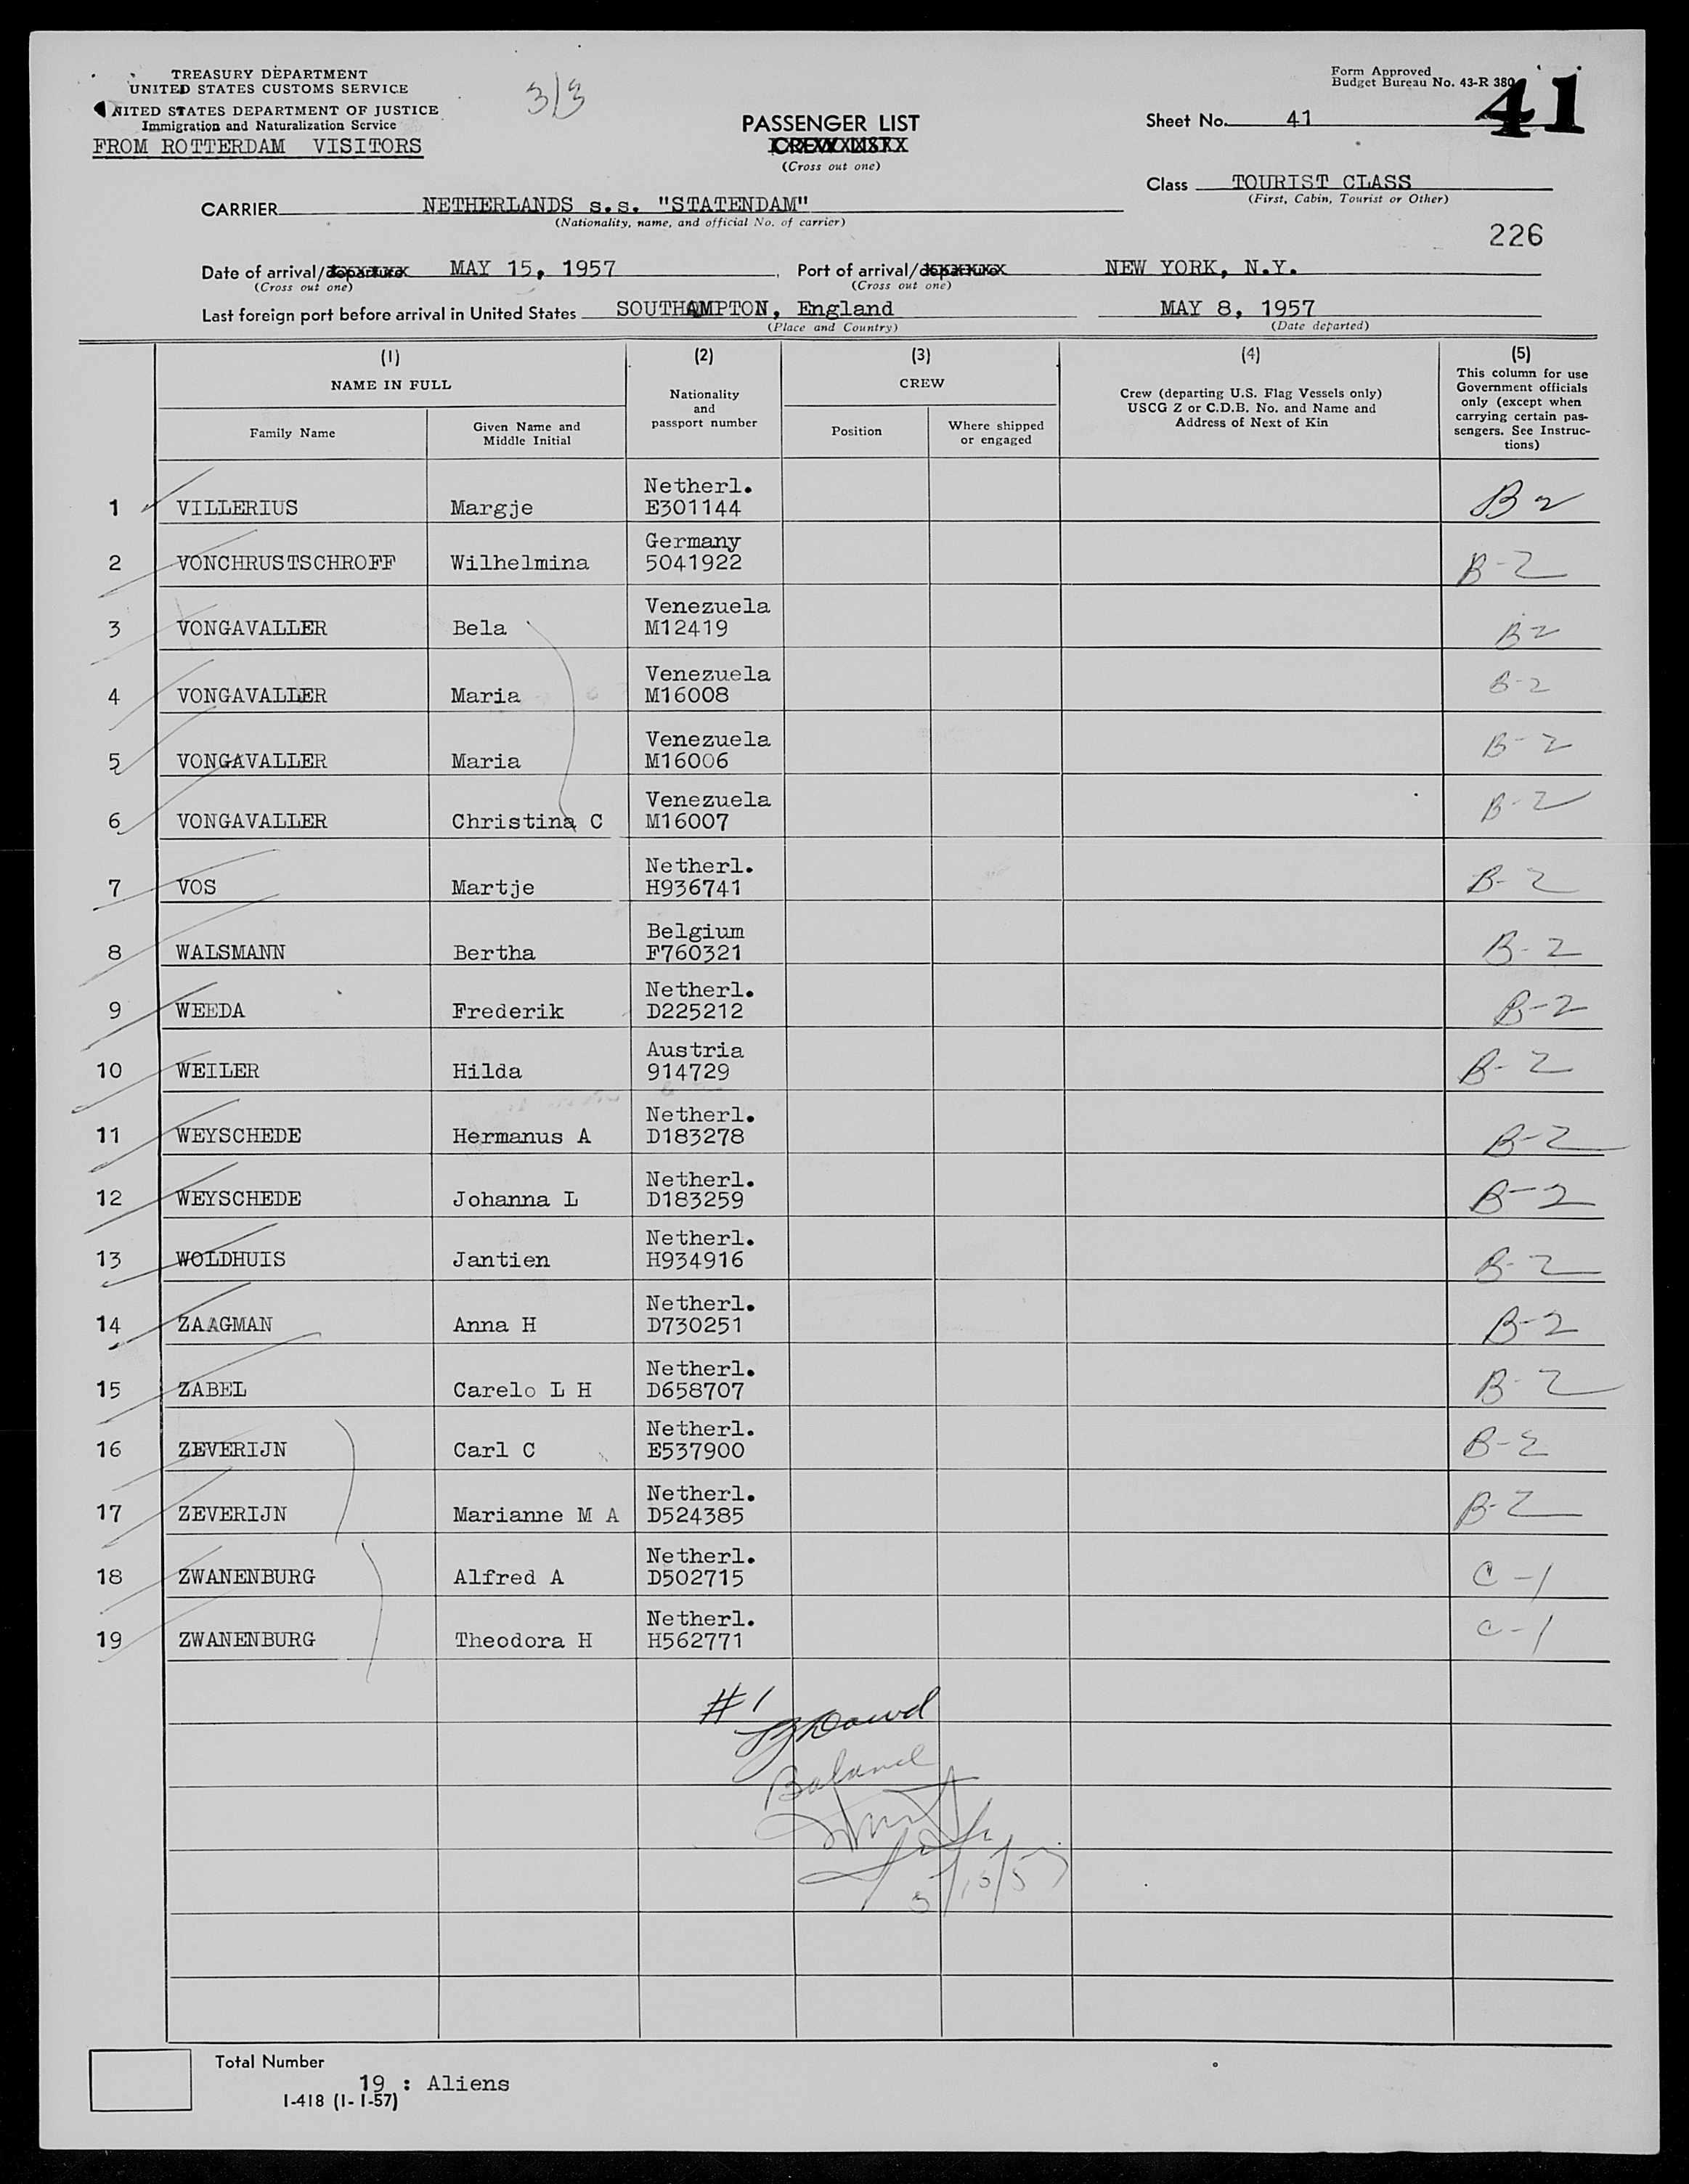 TREASURY DEPARTMENT
UNITED STATES CUSTOMS SERVICE
UNITED STATES DEPARTMENT OF JUSTICE
Immigration and Naturalization Service
FROM ROTTERDAM VISITORS
3/3
PASSENGER LIST
CREW LIST
(Cross out one)
Form Approved
Budget Bureau No. 43-R 380
41
Sheet No. 41
Class TOURIST CLASS
(First, Cabin, Tourist or Other)
CARRIER NETHERLANDS s.s. "STATENDAM"
(Nationality, name, and official No. of carrier)
226
Date of arrival/departure MAY 15, 1957 Port of arrival/departure NEW YORK, N.Y.
(Cross out one) (Cross out one)
Last foreign port before arrival in United States SOUTHAMPTON, England MAY 8, 1957
(Place and Country) (Date departed)
(1) (2) (3) (4) (5)
NAME IN FULL
Family Name
Given Name and
Middle Initial
Nationality
and
passport number
CREW
Position
Where shipped
or engaged
Crew (departing U.S. Flag Vessels only)
USCG Z or C.D.B. No. and Name and
Address of Next of Kin
This column for use
Government officials
only (except when
carrying certain pas-
sengers. See Instruc-
tions)
Netherl.
1 VILLERIUS Margje E301144 B2
Germany
2 VONCHRUSTSCHROFF Wilhelmina 5041922 B-2
Venezuela
3 VONGAVALLER Bela M12419 B2
Venezuela
4 VONGAVALLER Maria M16008 B-2
Venezuela
5 VONGAVALLER Maria M16006 B-2
Venezuela
6 VONGAVALLER Christina C M16007 B-2
Netherl.
7 VOS Martje H936741 B-2
Belgium
8 WALSMANN Bertha F760321 B-2
Netherl.
9 WEEDA Frederik D225212 B-2
Austria
10 WEILER Hilda 914729 B-2
Netherl.
11 WEYSCHEDE Hermanus A D183278 B-2
Netherl.
12 WEYSCHEDE Johanna L D183259 B-2
Netherl.
13 WOLDHUIS Jantien H934916 B-2
Netherl.
14 ZAAGMAN Anna H D730251 B-2
Netherl.
15 ZABEL Carelo L H D658707 B-2
Netherl.
16 ZEVERIJN Carl C E537900 B-2
Netherl.
17 ZEVERIJN Marianne M A D524385 B-2
Netherl.
18 ZWANENBURG Alfred A D502715 C-1
Netherl.
19 ZWANENBURG Theodora H H562771 C-1
#1
Total Number
19 : Aliens
I-418 (1-1-57)